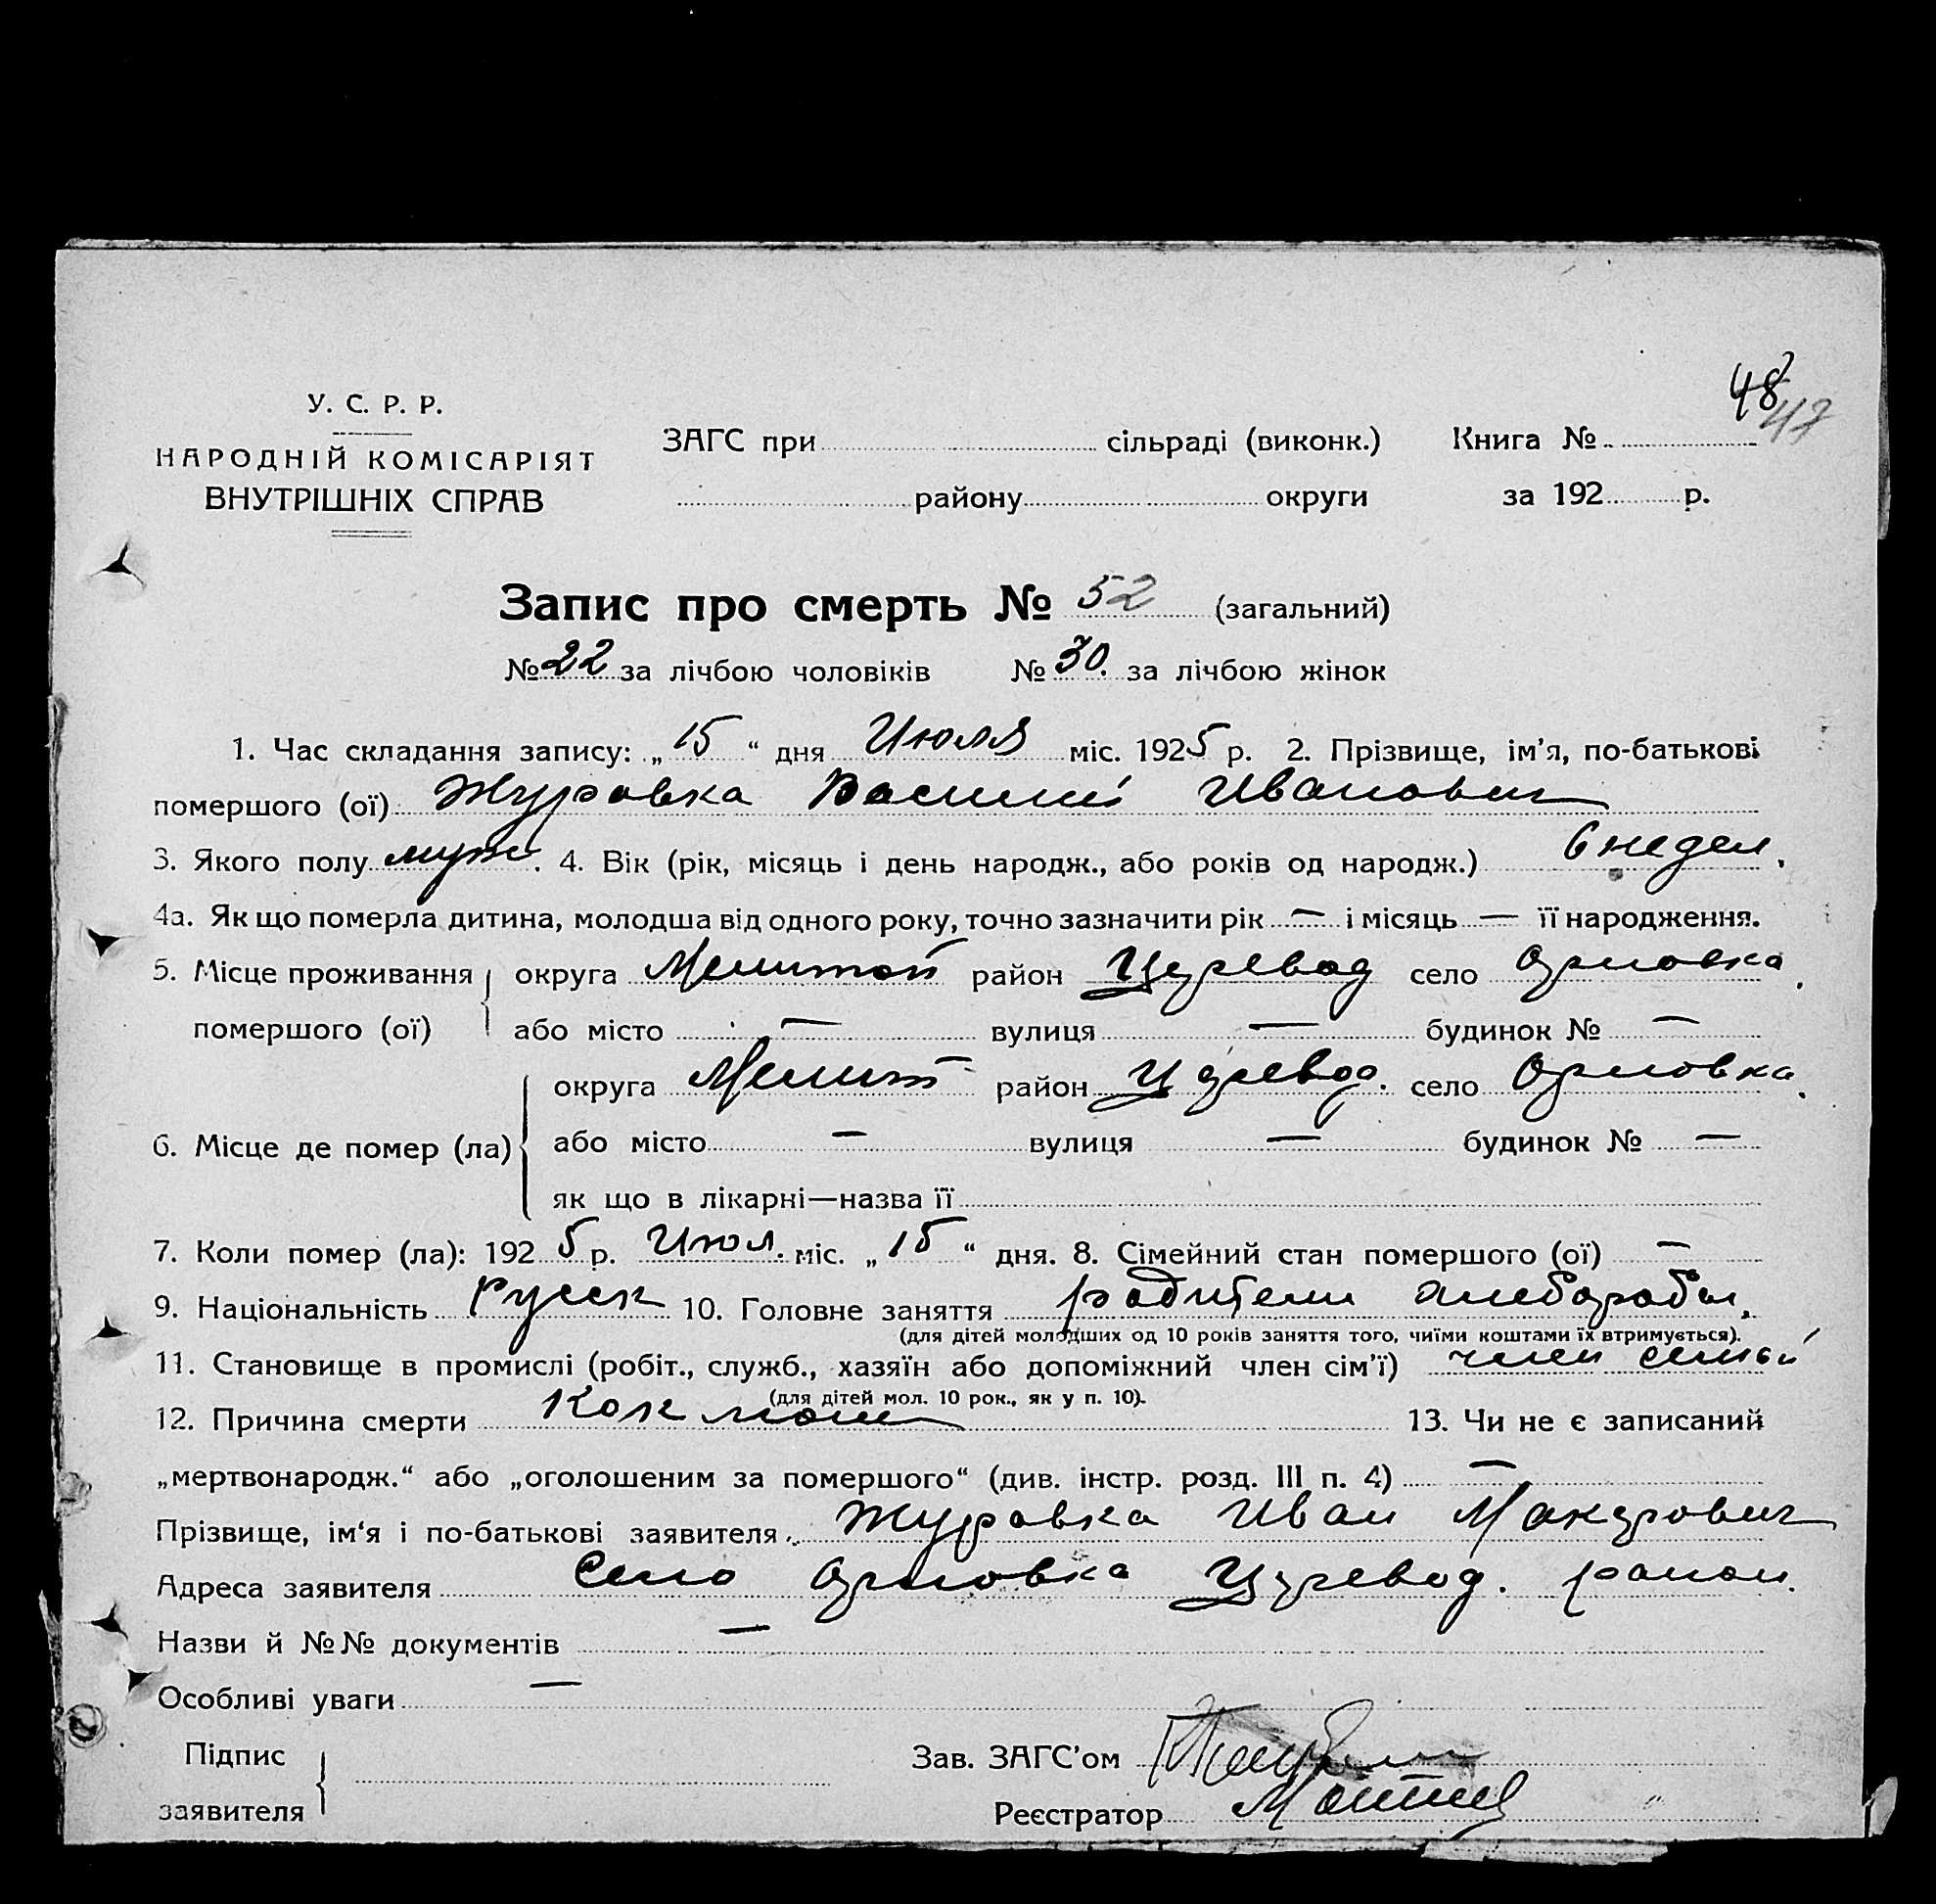 48
47
У. С. Р. Р.
НАРОДНІЙ КОМІСАРІЯТ
ВНУТРІШНІХ СПРАВ
ЗАГС при сільраді (виконк.) Книга №
району округи за 192 р.
Запис про смерть № 52 (загальний)
№ 22 за лічбою чоловіків № 30. за лічбою жінок
1. Час складання запису: „15“ дня Июля міс. 1925 р. 2. Прізвище, ім’я, по-батькові
помершого (ої) Журавка Василий Иванович
3. Якого полу муж. 4. Вік (рік, місяць і день народж., або років од народж.) 6 недел.
4а. Як що померла дитина, молодша від одного року, точно зазначити рік — і місяць — її народження.
5. Місце проживання округа район село Орловка
помершого (ої) або місто — вулиця — будинок № —
округа Мелит район село Орловка.
6. Місце де помер (ла) або місто — вулиця — будинок № —
як що в лікарні—назва її
7. Коли помер (ла): 1925 р. Июл. міс. „15“ дня. 8. Сімейний стан помершого (ої) —
9. Національність Русск 10. Головне заняття родители хлеборобы.
(для дітей молодших од 10 років заняття того, чиїми коштами їх втримується).
11. Становище в промислі (робіт., служб., хазяїн або допоміжний член сім’ї) член семьи
(для дітей мол. 10 рок., як у п. 10).
12. Причина смерти Коклюш 13. Чи не є записаний
„мертвонародж.“ або „оголошеним за помершого“ (див. інстр. розд. III п. 4) —
Прізвище, ім‘я і по-батькові заявителя Журавка Иван Макарович
Адреса заявителя Село Орловка район.
Назви й №№ документів —
Особливі уваги —
Підпис
заявителя
Зав. ЗАГС’ом
Реєстратор